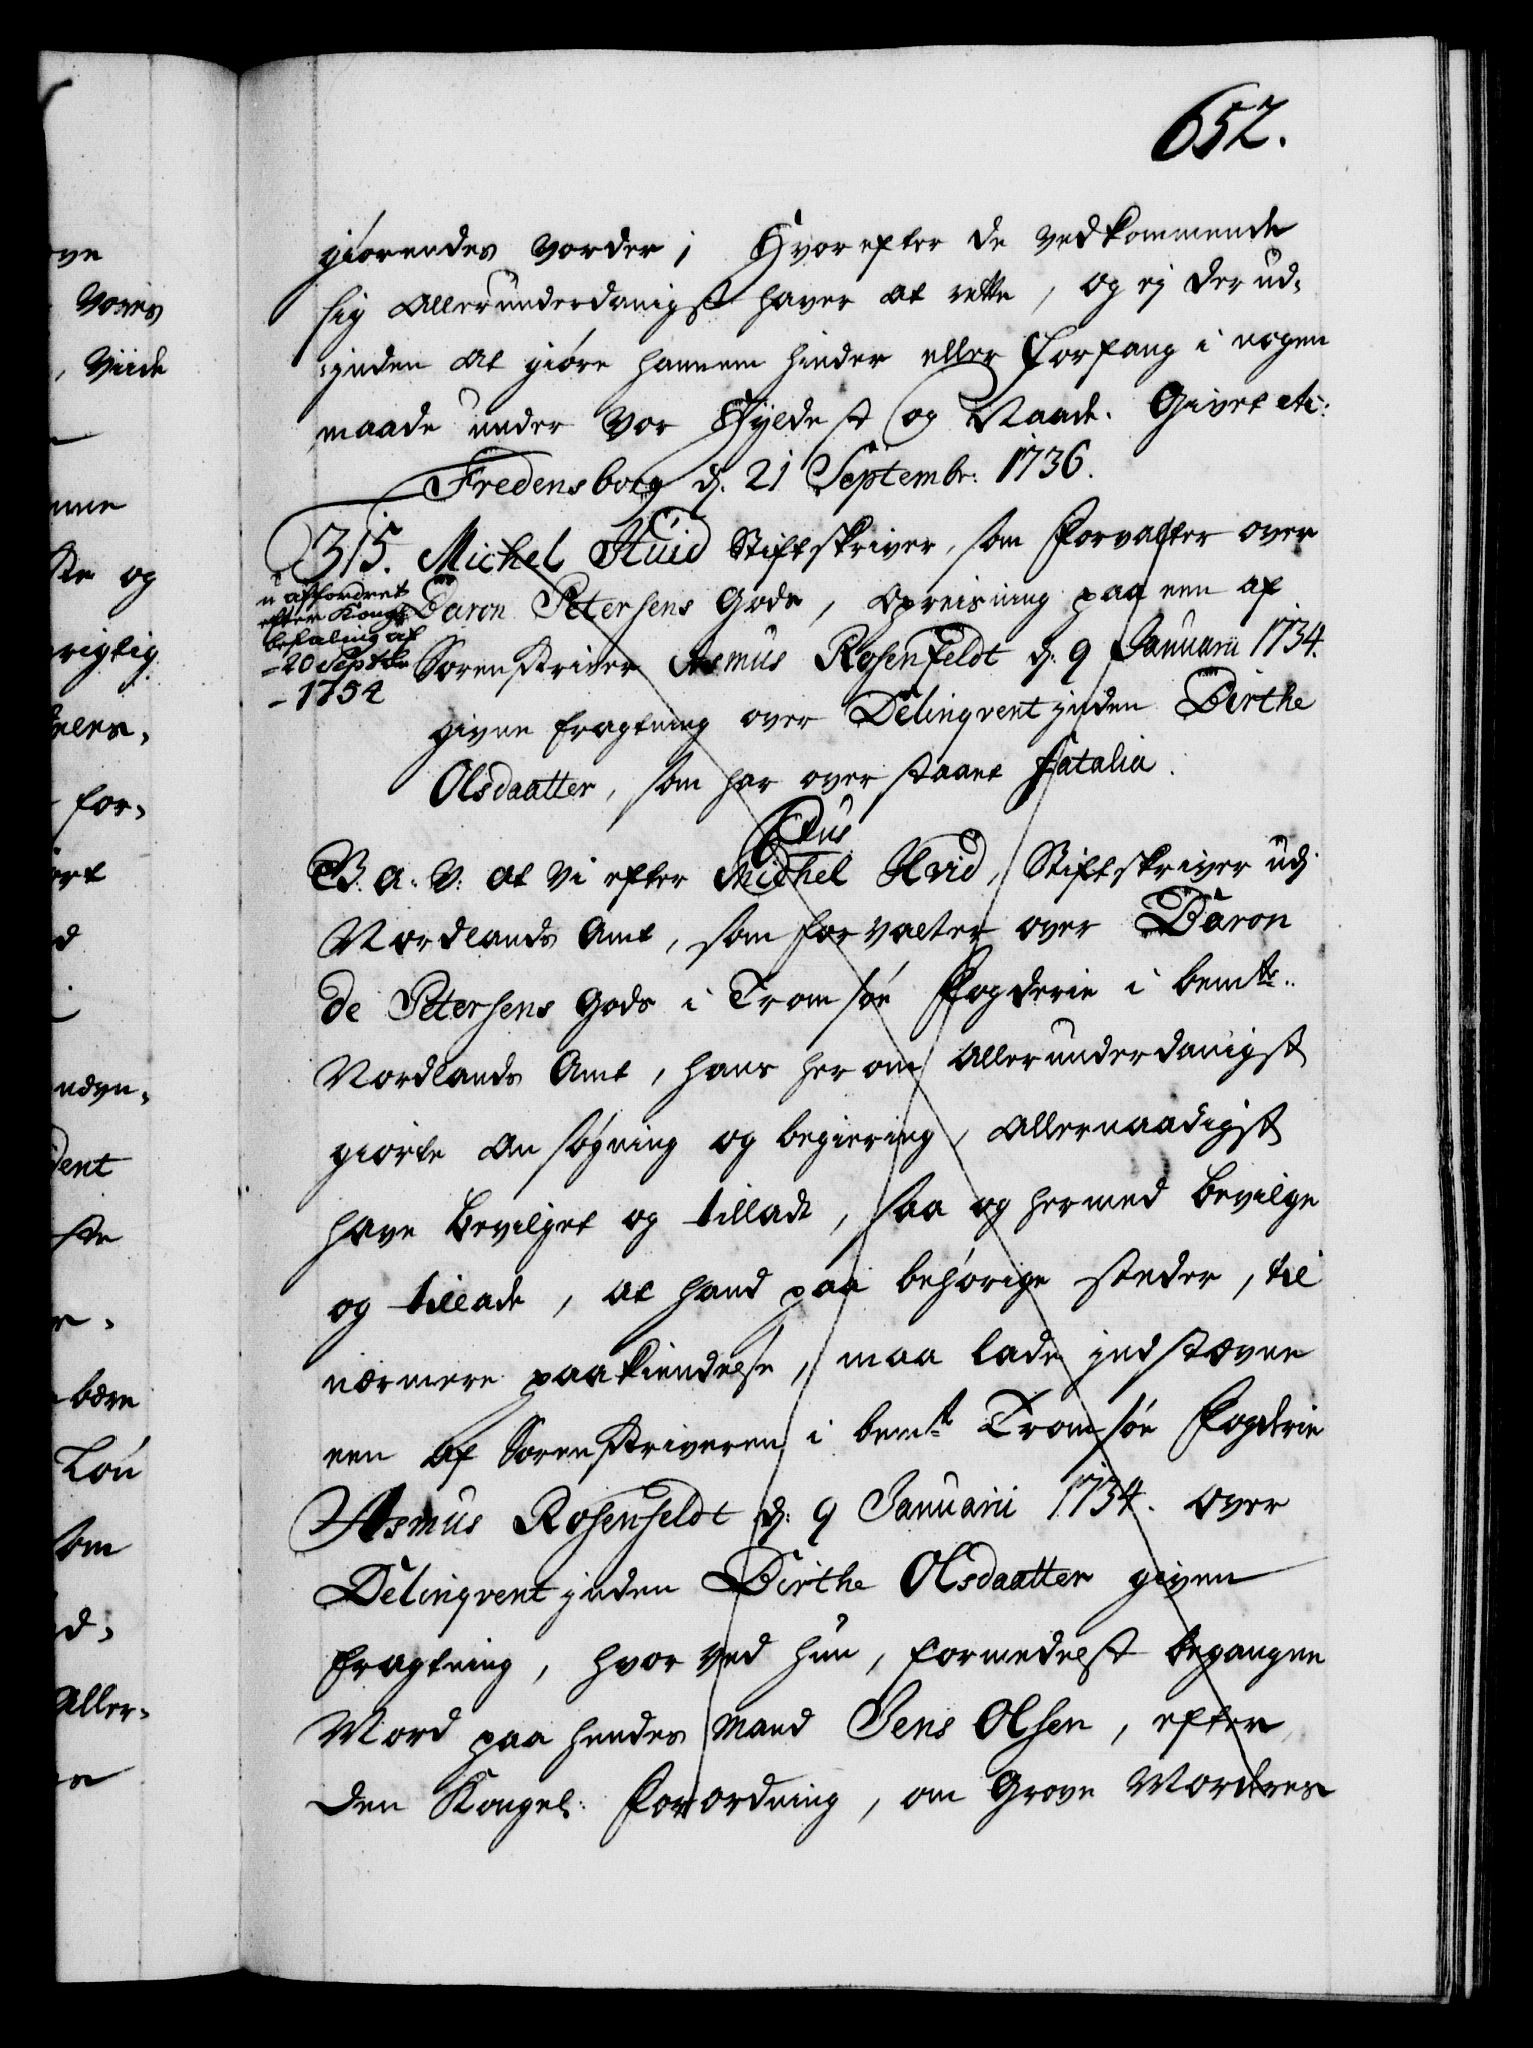 652.
giørendes vorder; Hvorefter de vedkommende
sig allerunderdanigst haver at rette, og ej der ud-
:inden at giøre hannem hinder eller Forfang i nogen
maade under vor Hyldest og Naade. Givet etc:
Fredensborg d. 21 Septembr: 1736.
315. Michel Huid Stiftskriver, som Forvalter over
Baron Petersens Gods, Opreisning paa een af
Sorenskriver Asmus Rosenfeldt d. 9 Januarii 1734.
given Fragtning over Delinqventinden Birthe
Olsdaatter, som har overstaaet Fatalia.
u-affordret
efter Kongl.
befaling af
-20 Septbr
-1754
G. A. V. at vi efter Michel Hvid, Stiftskriver udj
Nordlands Amt, som forvalter over Baron
de Petersens Gods i Tromsøe Fogderie i bemte.
Nordlands Amt, hans herom allerunderdanigst
giorte Ansøgning og begiering, allernaadigst
have bevilget og tilladt, saa og hermed bevilge
og tillade, at hand paa behørige steder, til
nærmere paakiendelse, maa lade indstævne
een af Sorenskriveren i bemte Tromsøe Fogderie
Asmus Rosenfeldt d. 9 Januarii 1734. over
Delinqventinden Birthe Olsdaatter given
Fragtning, hvorved hun, formedelst begangne
Mord paa hendes Mand Jens Olsen, efter
den Kongel: Forordning, om Grove Mordres